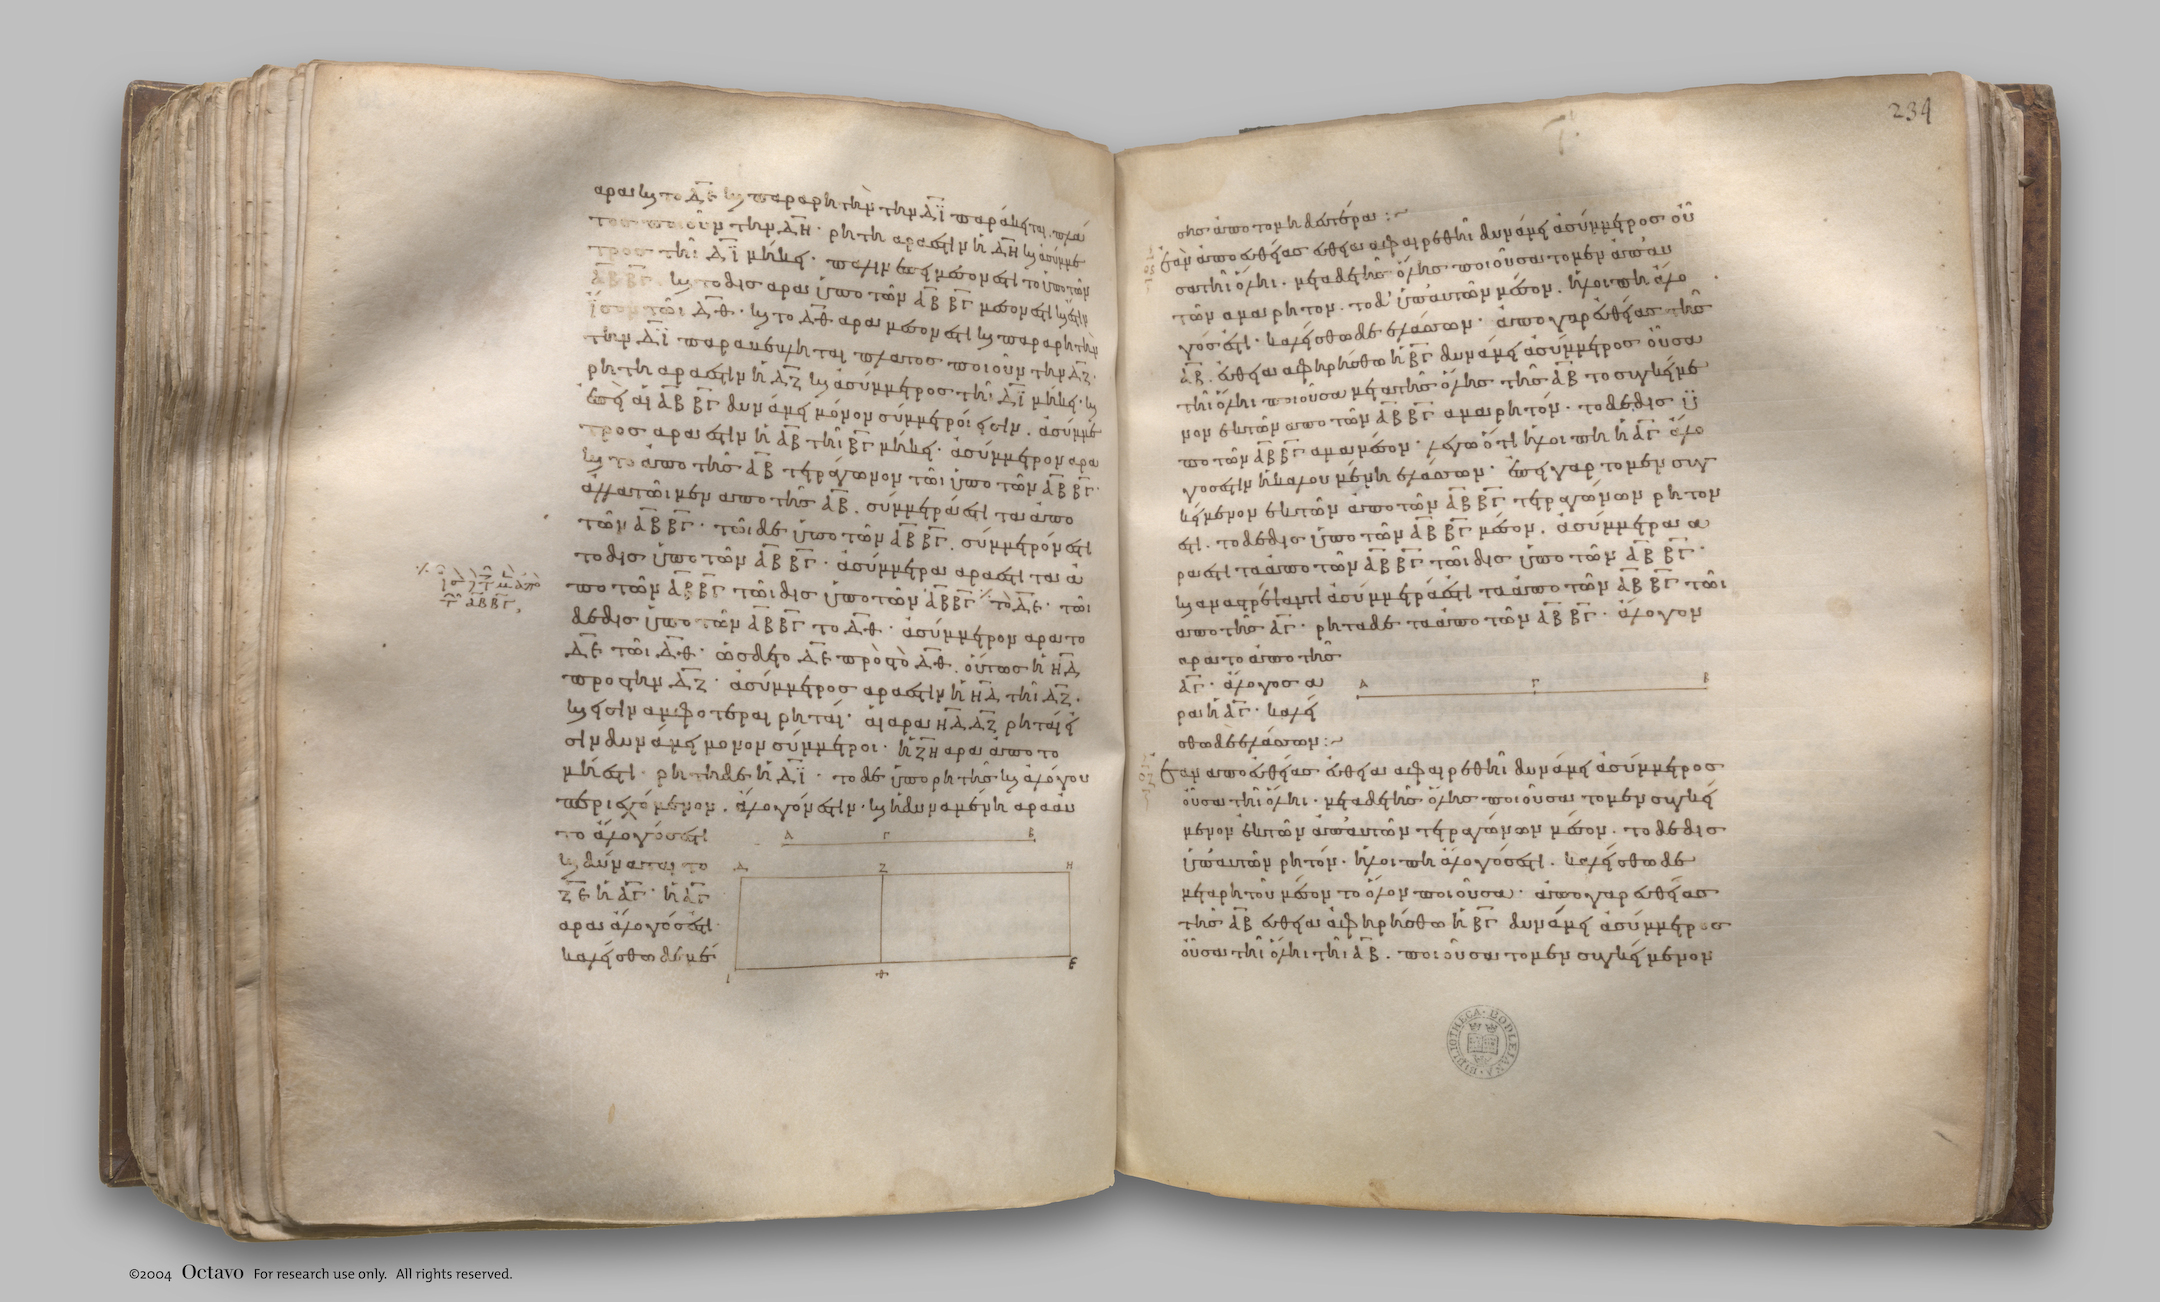 αρα καὶ το ΔΕ καὶ παρα ρητὴν την ΔΪ παράκειται πλά
τος ποιοῦν την ΔΗ· ρητη αρα εστὶν ἡ ΔΗ καὶ ἀσύμμε
τρος τῆι ΔΪ μήκει· παλιν ἐπεὶ μέσον εστὶ το ὑπο τῶν
ΑΒ ΒΓ. καὶ το δις αρα ὑπο τῶν ΑΒ ΒΓ μέσον εστὶ καὶ ἐστιν
ἴσον τῶι ΔΘ· καὶ το ΔΘ αρα μέσον εστὶ καὶ παρα ρητὴν
την ΔΪ παραβέβληται πλατος ποιοῦν την ΔΖ·
ρητη αρα εστὶν ἡ ΔΖ καὶ ἀσύμμετρος τῆι ΔΪ μήκει· καὶ
ἐπεὶ αἱ ΑΒ ΒΓ δυνάμει μόνον σύμμετροί εἰσιν. ἀσύμμε
τρος αρα εστὶν ἡ ΑΒ τῆι ΒΓ μήκει· ἀσύμμετρον αρα
καὶ το ἀπο τῆς ΑΒ τετράγωνον τῶι ὑπο τῶν ΑΒ ΒΓ·
ἀλλα τῶι μεν απο τῆς ΑΒ. σύμμετρά εστι τα ἀπο
τῶν ΑΒ ΒΓ· τῶι δε ὑπο τῶν ΑΒ ΒΓ. σύμμετρόν εστι
το δις ὑπο τῶν ΑΒ ΒΓ· ἀσύμμετρα αρα εστὶ τα ἀ
πο τῶν ΑΒ ΒΓ τῶι δις ὑπο τῶν ΑΒ ΒΓ ⁒ τὸ ΔΕ· τῶι
δε δις ὑπο τῶν ΑΒ ΒΓ το ΔΘ· ἀσύμμετρον αρα το
ΔΕ τῶι ΔΘ· ὡς δε το ΔΕ πρὸς τὸ ΔΘ. οὕτως ἡ ΗΔ
προς την ΔΖ· ἀσύμμετρος αρα εστὶν ἡ ΗΔ τῆι ΔΖ·
καὶ εἰσιν αμφοτεραι ρηταί· αἱ αρα ΗΔ ΔΖ ρηταί εἰ
σιν δυνάμει μονον σύμμετροι· ἡ ΖΗ αρα ἀποτο
μή εστι· ρητη δε ἡ ΔΪ· το δε ὑπο ρητῆς καὶ ἀλόγου
περιεχόμενον. ἄλογόν εστιν· καὶ ἡ δυναμένη αρα ἀυ
το ἄλογός εστι
καὶ δύναται το
ΖΕ ἡ ΑΓ· ἡ ΑΓ
αρα ἄλογός εστι·
καλείσθω δε μέ
Α Γ Β
Δ Ζ Η
Ι Θ Ε
ΑΒ ΒΓ
234
σης ἀποτομη δευτέρα :~
Ἐὰν ἀπο ευθείας ευθεια αφαιρεθῆι δυνάμει ἀσύμμετρος οὖ
σα τῆι ὅλῃι. μετα δε τῆς ὅλης ποιοῦσα το μεν ἀπ' αυ
τῶν αμα ρητον. το δ' ὑπ' αυτῶν μέσον. ἡ λοιπη ἄλο
γός εστι· καλείσθω δε ελάσσων· ἀπο γαρ ευθείας τῆς
ΑΒ. ευθεια αφηρήσθω ἡ ΒΓ δυνάμει ἀσύμμετρος οὖσα
τῆι ὅληι ποιοῦσα μετα τῆς ὅλης τῆς ΑΒ το συγκείμε
νον εκ τῶν απο τῶν ΑΒ ΒΓ αμα ρητόν· το δε δις ὑ
πο τῶν ΑΒ ΒΓ αμα μέσον· λεγω ὅτι ἡ λοιπη ἡ ΑΓ ἄλο
γος εστὶν ἡ καλουμένη ελάσσων· ἐπεὶ γαρ το μεν συγ
κείμενον εκ τῶν ἀπο τῶν ΑΒ ΒΓ τετραγώνων ρητον
εστι. το δε δις ὑπο τῶν ΑΒ ΒΓ μέσον. ἀσύμμετρα α
ρα εστὶ τα ἀπο τῶν ΑΒ ΒΓ τῶι δις ὑπο τῶν ΑΒ ΒΓ·
καὶ αναστρέψαντι ἀσύμμετρά εστι τα ἀπο τῶν ΑΒ ΒΓ τῶι
απο τῆς ΑΓ· ρητα δε τα ἀπο τῶν ΑΒ ΒΓ· ἄλογον
αρα το ἀπο τῆς
ΑΓ· ἄλογος α
ρα ἡ ΑΓ· καλεί
σθω δε ελάσσων :~
Α Γ Β
Ἐαν απο ευθείας ευθεια αφαιρεθῆι δυνάμει ἀσύμμετρος
οὖσα τῆι ὅληι. μετα δε τῆς ὅλης ποιοῦσα το μεν συγκεί
μενον ἐκ τῶν ἀπ' αυτῶν τετραγώνων μέσον. το δε δις
ὑπ' αυτῶν ρητόν. ἡ λοιπη ἄλογός εστι. καλείσθω δε
μετα ρητοῦ μέσον το ὅλον ποιοῦσα· ἀπο γαρ ευθείας
τῆς ΑΒ ευθεια ἀφηρήσθω ἡ ΒΓ δυνάμει ἀσύμμετρος
οὖσα τῆι ὅληι τῆι ΑΒ. ποιοῦσα το μεν συγκείμενον
BIBLIOTHECA BODLEIANA
©2004 Octavo For research use only. All rights reserved.